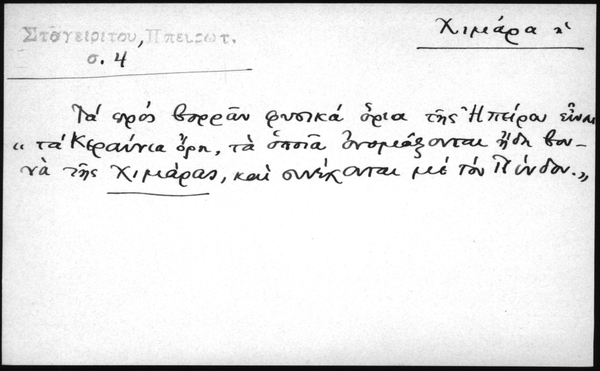 Σταγειρίτου, Ἠπειρωτ.
σ. 4
Χιμάρα ἡ
Τά πρός βορρᾶν φυσικά ὅρια τῆς Ἠπείρου εἶναι
« τά Κεραύνια ὄρη, τὰ ὁποῖα ὀνομάζονται ἤδη βου-
νὰ τῆς Χιμάρας, καί συνέχονται μέ τόν Πίνδον.»